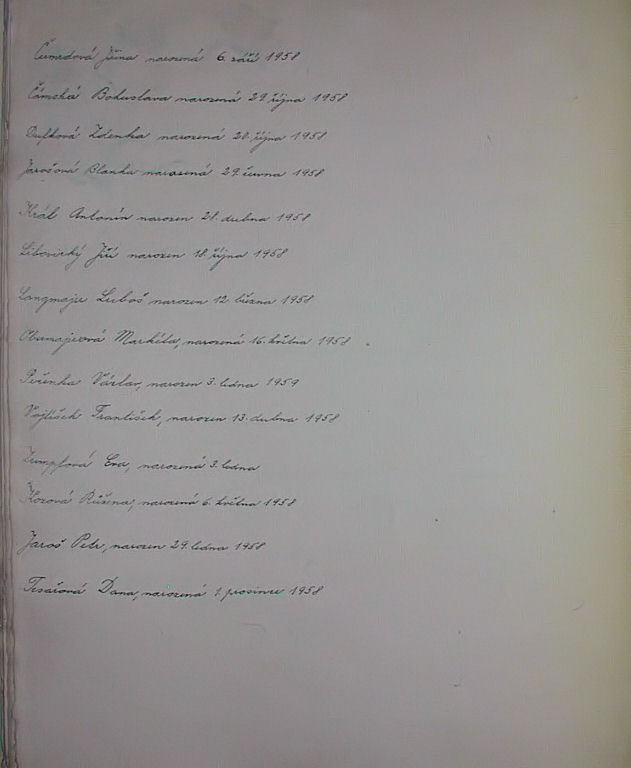 Čumrdová Jiřina narozená 6. září 1958
Čámská Bohuslava narozená 29. října 1958
Dufková Zdenka narozená 20. října 1958
Jarošová Blanka narozená 29. června 1958
Král Antonín narozen 28. dubna 1958
Libovický Jiří narozen 18. října 1958
Langmajer Luboš narozen 12. března 1958
Obermajerová Markéta, narozená 16. května 1958
Peřinka Václav, narozen 3. ledna 1959
Vojtíšek František, narozen 13. dubna 1958
Eva, narozená 3. ledna
Růžena, narozená 6. května 1958
Jaroš Petr, narozen 29. ledna 1958
Tesařová Dana, narozená 1. prosince 1958